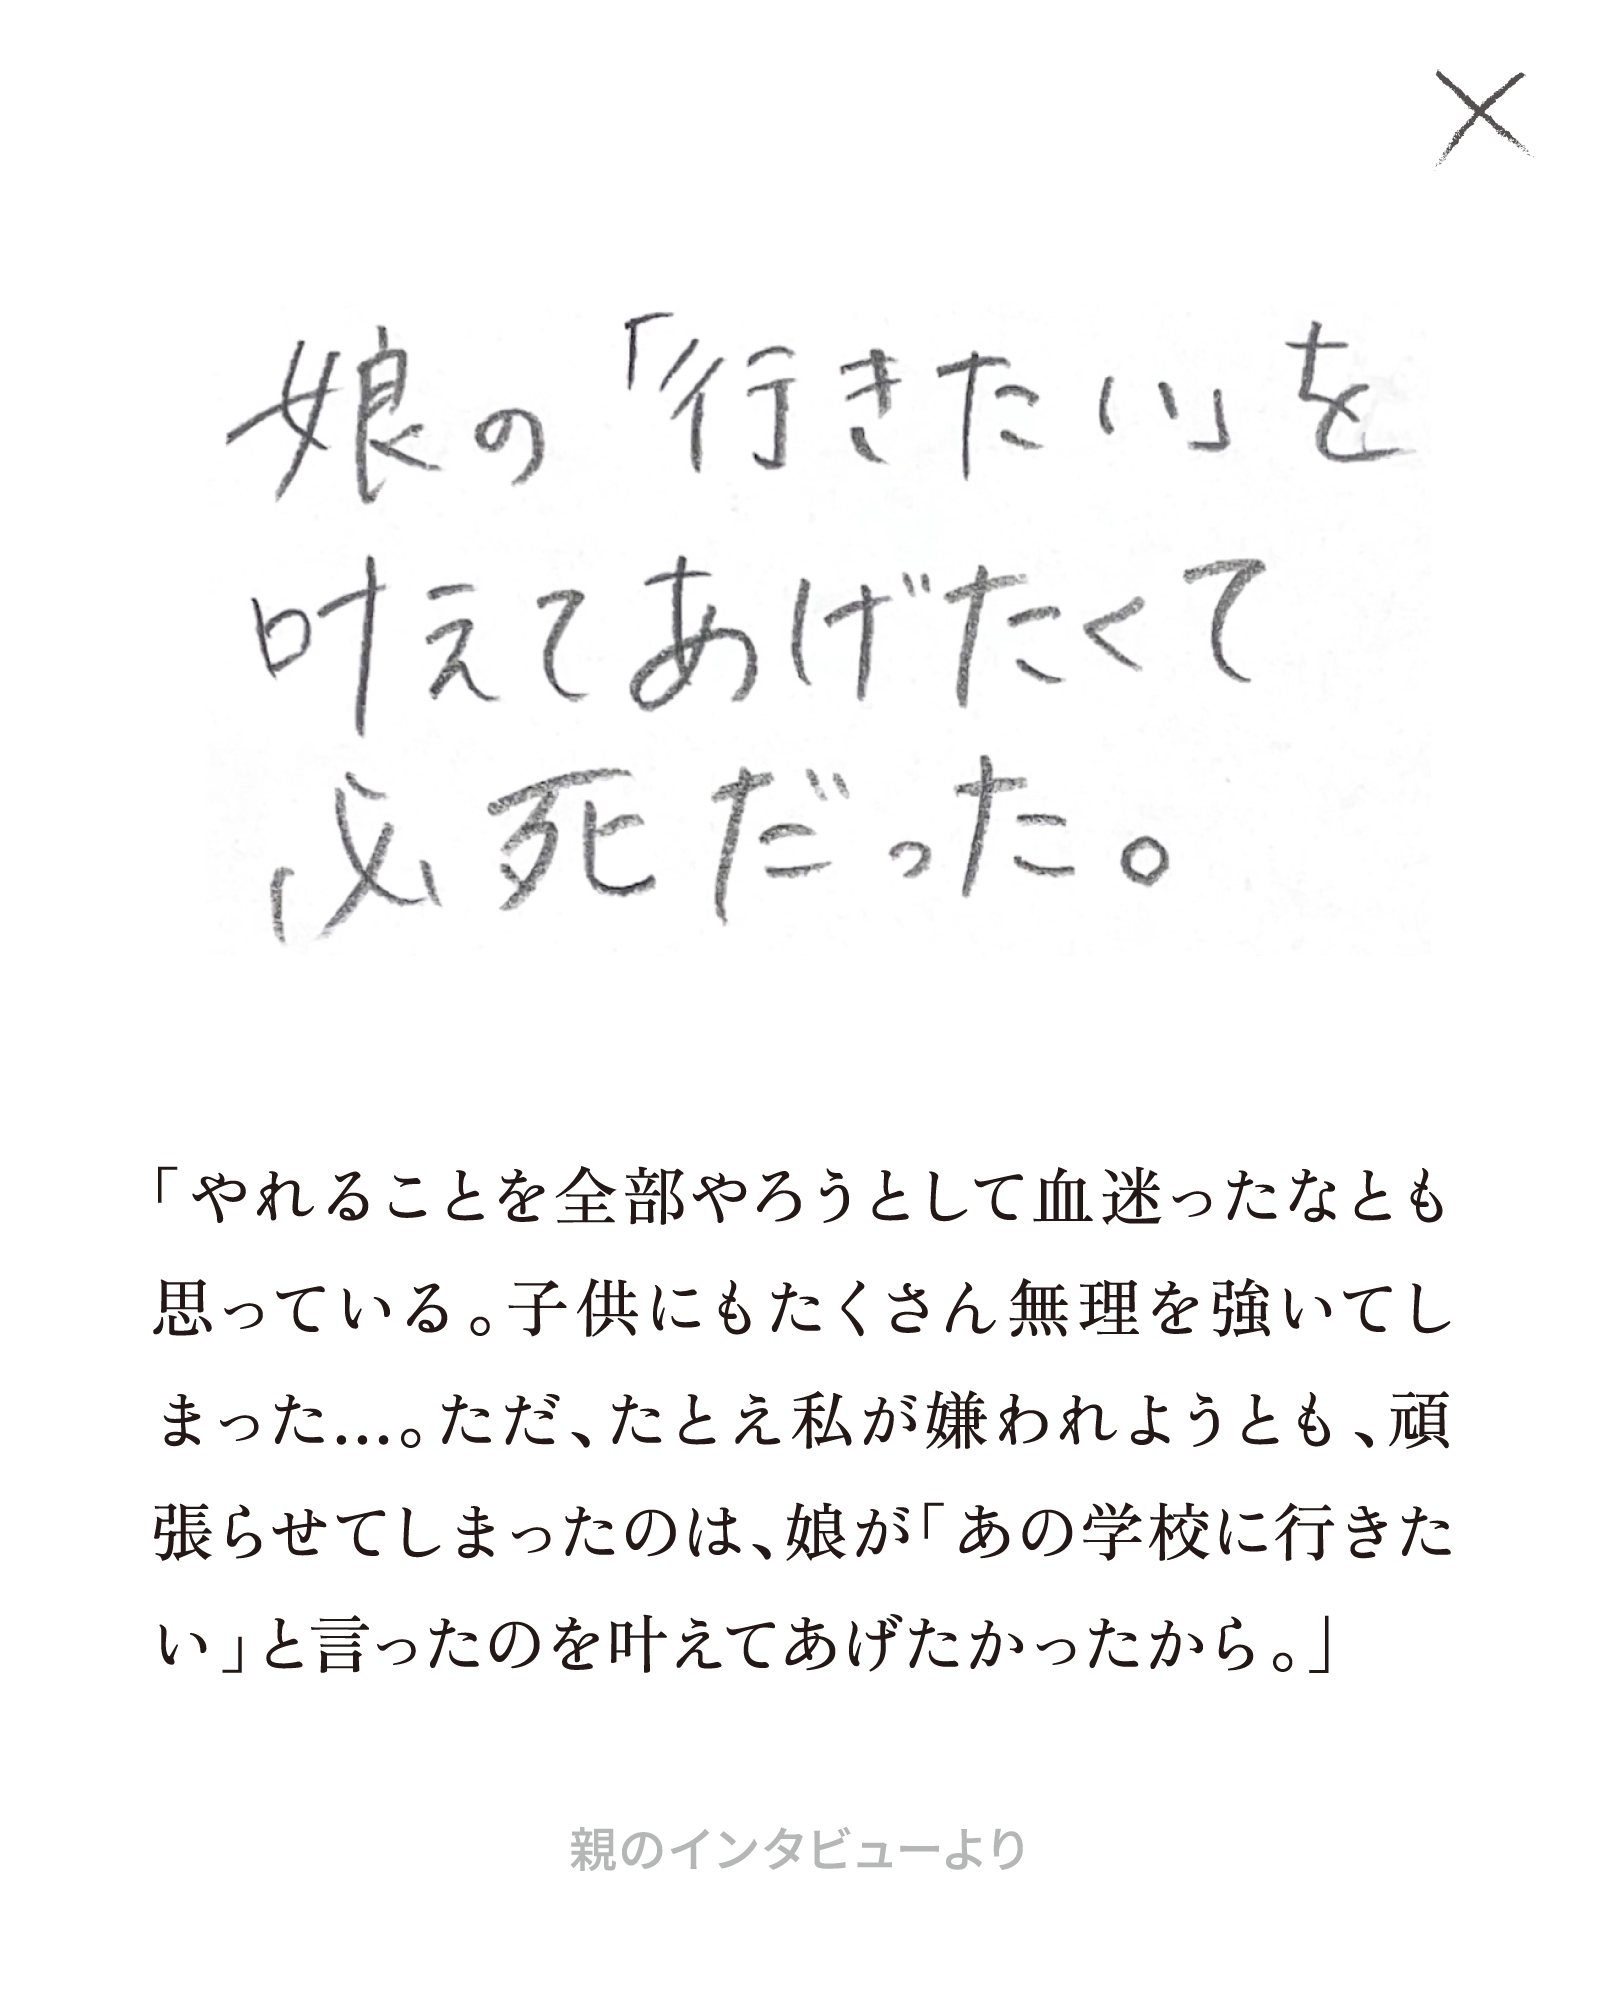 娘の「行きたい」を
叶えてあげたくて
必死だった。
「やれることを全部やろうとして血迷ったなとも
思っている。子供にもたくさん無理を強いてし
まった…。ただ、たとえ私が嫌われようとも、頑
張らせてしまったのは、娘が「あの学校に行きた
い」と言ったのを叶えてあげたかったから。」
親のインタビューより